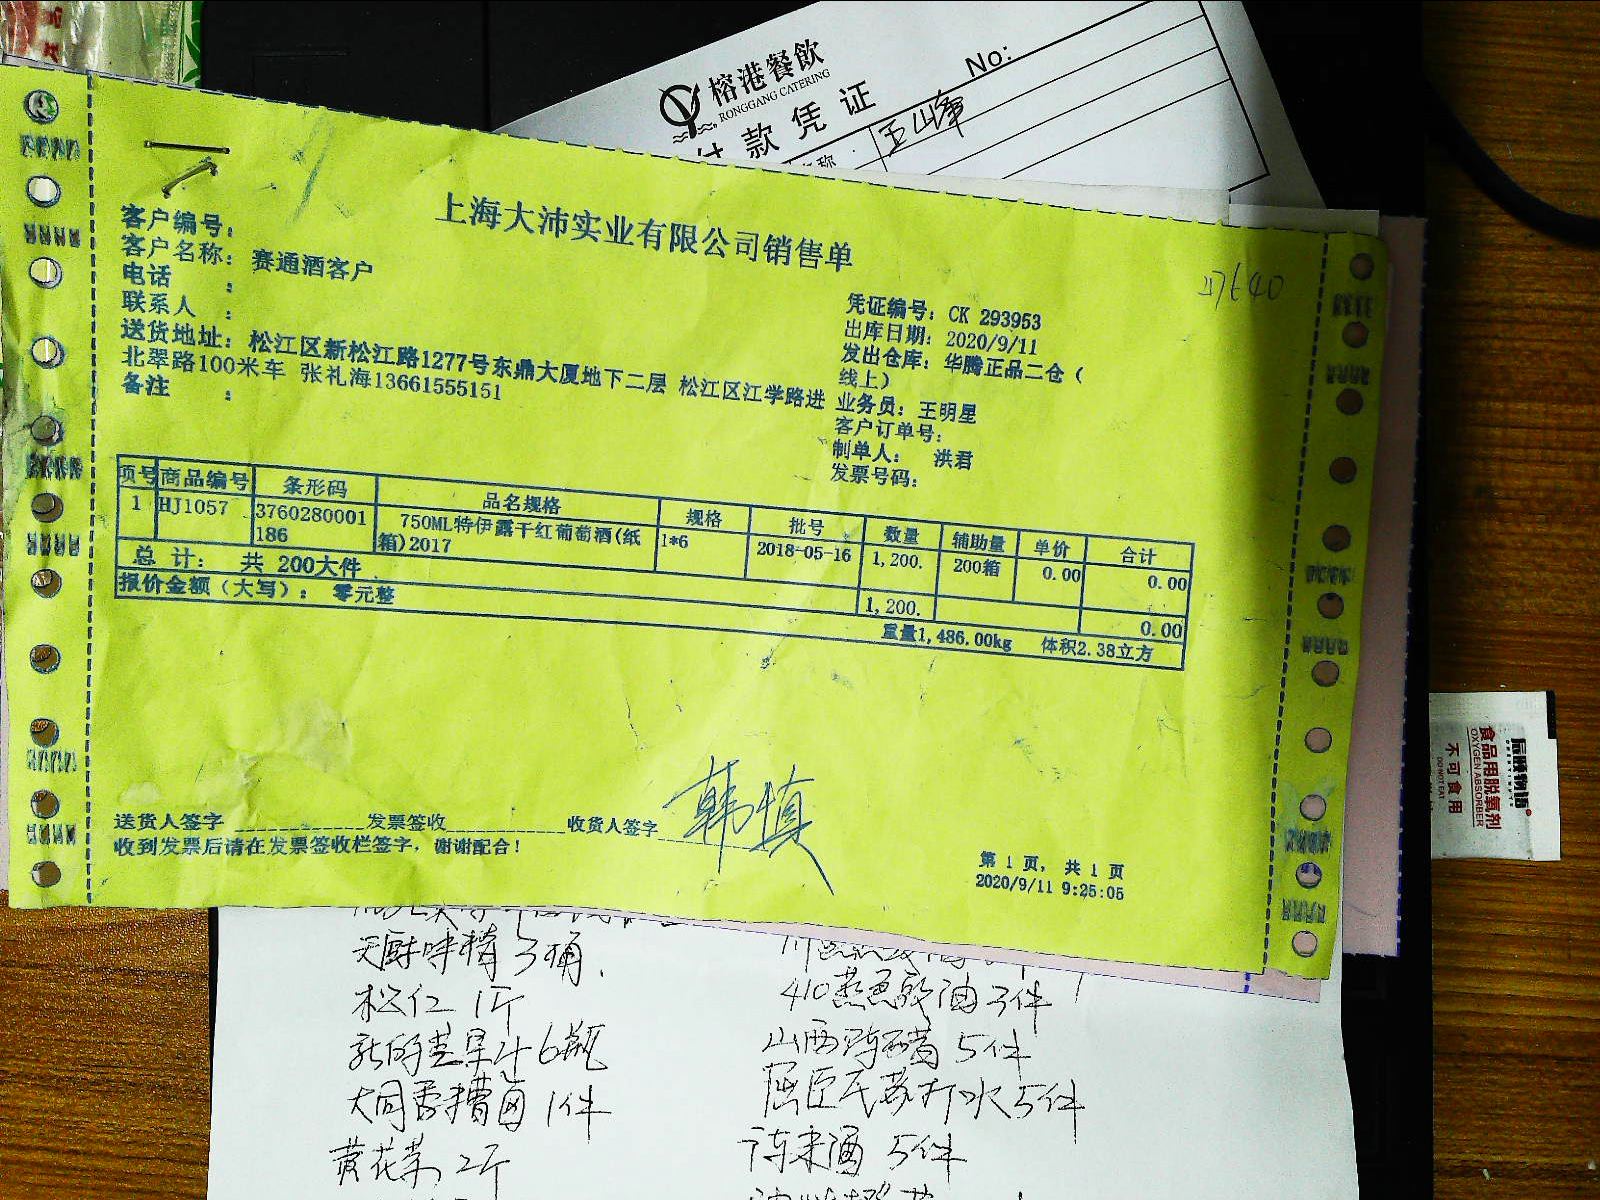 榕港餐飲
RONGGANG CATERING
付款凭证
No:
名称
上海大沛实业有限公司销售单
客户编号:
客户名称: 赛通酒客户
电话 :
联系人 :
送货地址: 松江区新松江路1277号东鼎大厦地下二层 松江区江学路进
北翠路100米车 张礼海13661555151
备注 :
凭证编号: CK 293953
出库日期: 2020/9/11
发出仓库: 华腾正品二仓(
线上)
业务员: 王明星
客户订单号:
制单人: 洪君
发票号码:
项号 商品编号 条形码 品名规格 规格 批号 数量 辅助量 单价 合计
1 HJ1057 3760280001 750ML特伊露干红葡萄酒(纸 1*6 2018-05-16 1,200. 200箱 0.00 0.00
186 箱)2017
总 计: 共 200大件 1,200. 0.00
报价金额(大写): 零元整 重量1,486.00kg 体积2.38立方
送货人签字 发票签收 收货人签字 韩慎
收到发票后请在发票签收栏签字, 谢谢配合!
第 1 页, 共 1 页
2020/9/11 9:25:05
天厨味精 3桶
松仁 1斤
6瓶
大同香糟卤 1件
黄花菜 2斤
410蒸鱼豉油 3件
山西陈醋 5件
屈臣氏苏打水 5件
5件
食品用脱氧剂
OXYGEN ABSORBER
不可食用
DO NOT EAT